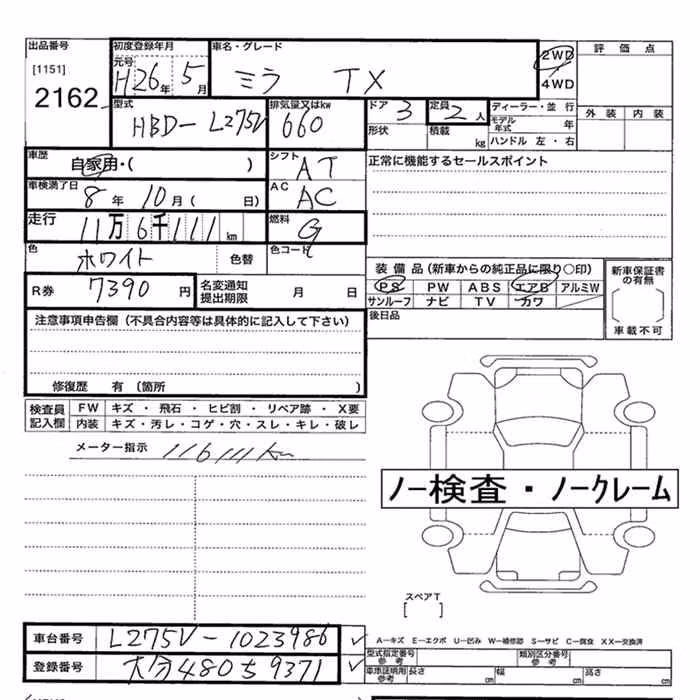 出品番号
[1151]
2162
初度登録年月
元号 H26年 5月
車名・グレード
ミラ TX
2WD
4WD
評価点
外装 内装
型式
HBD-L275V
排気量又はkw
660
ドア 3
形状
定員 2人
積載 kg
ディーラー・並行
モデル年式 年
ハンドル 左・右
車歴
自家用・( )
シフト AT
正常に機能するセールスポイント
車検満了日
8年 10月( 日)
AC AC
走行 11万6千111km
燃料 G
色 ホワイト 色替
色コード
R券 7390円
名変通知
提出期限 月 日
装備品(新車からの純正品に限り〇印)
PS PW ABS エアB アルミW
サンルーフ ナビ TV カワ
新車保証書
の有無
車載不可
後日品
注意事項申告欄(不具合内容等は具体的に記入して下さい)
修復歴 有 (箇所 )
検査員
記入欄
FW キズ・飛石・ヒビ割・リペア跡・X要
内装 キズ・汚レ・コゲ・穴・スレ・キレ・破レ
メーター指示 116111km
ノー検査・ノークレーム
スペアT
[ ]
車台番号 L275V-1023986
登録番号 大分480ち9371
A―キズ E―エクボ U―凹み W―補修跡 S―サビ C―腐食 XX―交換済
型式指定番号
参考
類別区分番号
参考
車庫証明用
参考
長さ cm 幅 cm 高さ cm